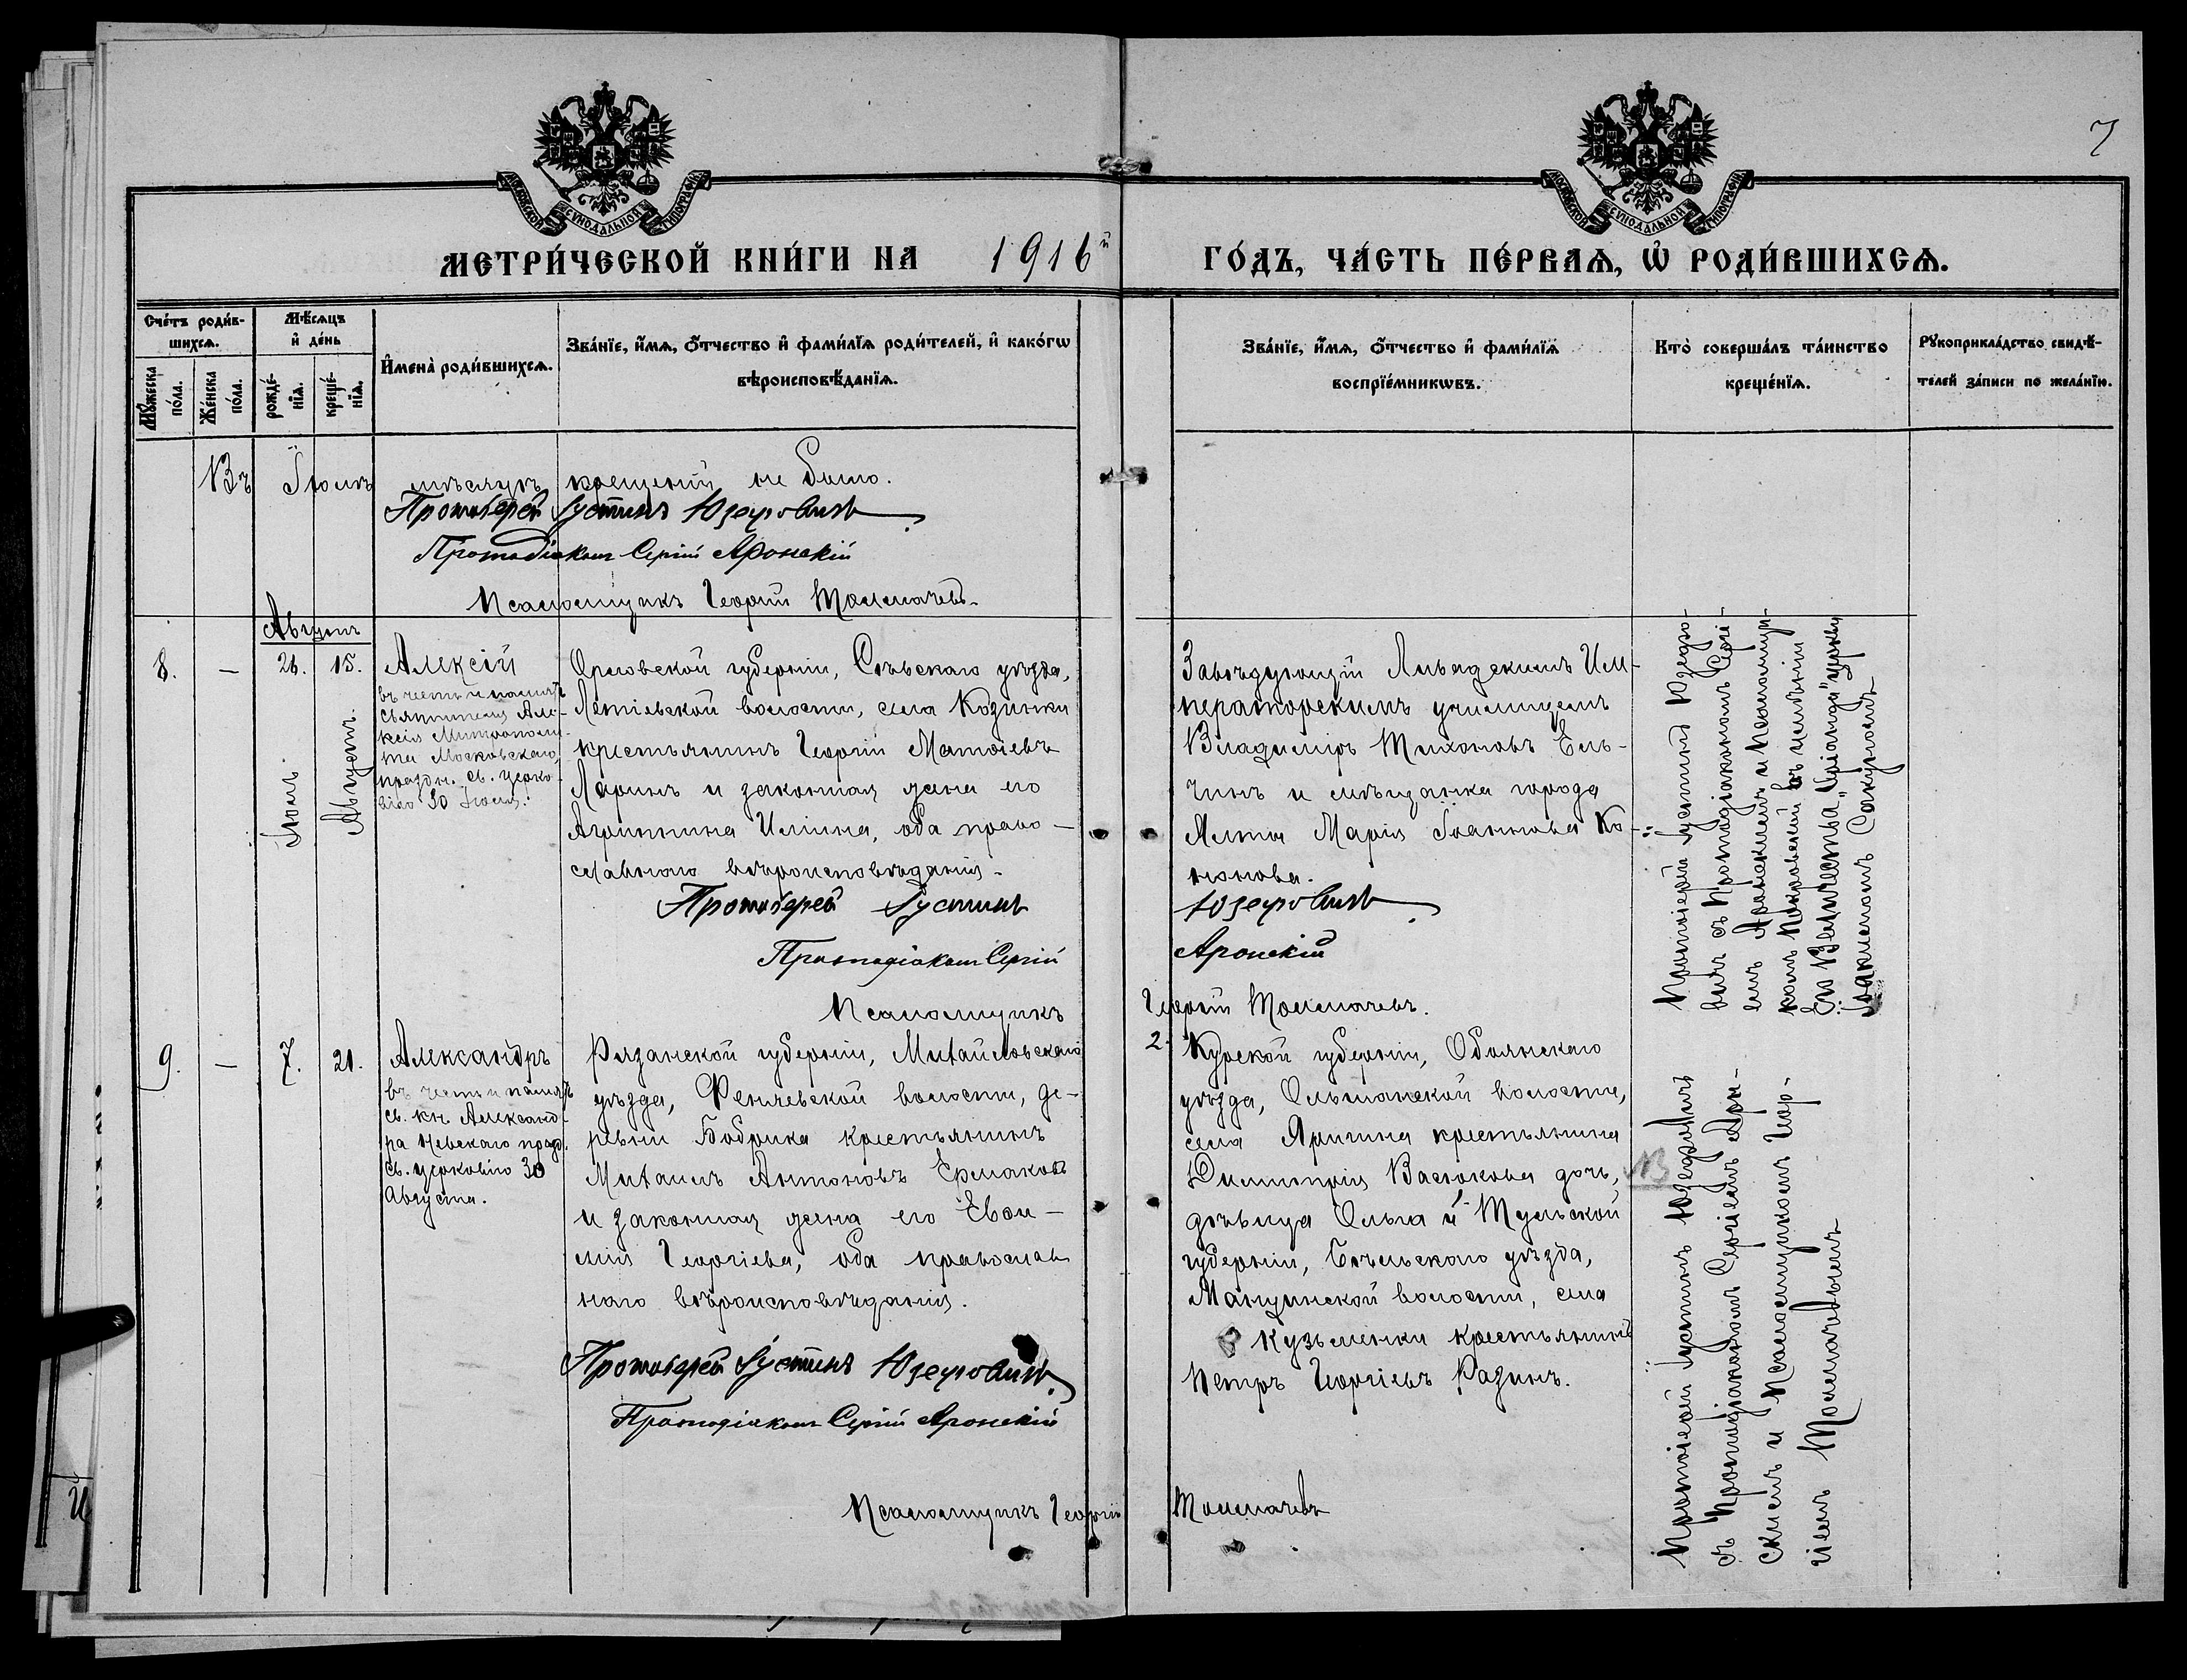 7
МОСКОВСКОЙ СѴНОДАЛЬНОЙ ТИПОГРАФІИ
МОСКОВСКОЙ СѴНОДАЛЬНОЙ ТИПОГРАФІИ
МЕТРИ́ЧЕСКОЙ КНИ́ГИ НА 1916й ГО́ДЪ, ЧА́СТЬ ПЕ́РВАѦ, Ѽ РОДИ́ВШИХСѦ.
Сче́тъ роди́в-
шихсѧ.
Мꙋ́жеска по́ла.
Же́нска по́ла.
Мѣ́сѧцъ
и҆ де́нь
рожде́-
нїѧ.
креще́-
нїѧ.
И҆мена̀ роди́вшихсѧ.
Зва́нїе, и҆́мѧ, ѻ҆́тчество и҆ фами́лїѧ роди́телей, и҆ како́гѡ
вѣроисповѣ́данїѧ.
Зва́нїе, и҆́мѧ, ѻ҆́тчество и҆ фами́лїѧ
воспрїе́мникѡвъ.
Кто̀ соверша́лъ та́инство
креще́нїѧ.
Рꙋкоприкла́дство свидѣ́-
телей за́писи по жела́нїю.
Въ Іюлѣ мѣсяцѣ крещеній не было.
Протоіерей Іустинъ Юзефовичъ
Протодіаконъ Сергій Аронскій
Псаломщикъ Георгій Толмачевъ.
Августъ
8. — 26. 15.
Іюль
Августъ
Алексій
въ честь и память
Святителя Але-
ксія Митрополи-
та Московскаго,
праздн. св. церко-
вію
Орловской губерніи, Сѣвскаго уѣзда,
волости, села Козинки
крестьянинъ Георгій Матѳіевъ
Ларинъ и законная жена его
Агриппина Иліина, оба право-
славнаго вѣроисповѣданія.
Протоіерей Іустинъ Юзефовичъ
Протодіаконъ Сергій Аронскій
Псаломщикъ Георгій Толмачевъ.
Завѣдующій Ливадскимъ Им-
ператорскимъ училищемъ
Владиміръ Тихоновъ Ель-
чинъ и мѣщанка города
Ялты Марія Іоаннова Ко-
нонова.
Протоіерей Іустинъ Юзефо-
вичъ съ Протодіакономъ Сергі-
емъ Аронскимъ и Псаломщи-
комъ въ имѣніи
Его Величества „Оріанда" церкви
9. — 7. 21.
Александръ
въ честь и память
св. кн. Александ-
ра Невскаго празд.
св. церковію 30
Августа.
Рязанской губерніи, Михайловскаго
уѣзда, Феничевской волости, де-
ревни Бобрика крестьянинъ
Михаилъ Антоновъ Ермаковъ
и законная жена его Евѳи-
мія Георгіева, оба православ
наго вѣроисповѣданія.
Протоіерей Іустинъ Юзефовичъ
Протодіаконъ Сергій Аронскій
Псаломщикъ Георгій Толмачевъ
2. Курской губерніи, Обоянскаго
уѣзда, Ольшанской волости,
села крестьянина
Димитрія Васюкова дочь,
дѣвица Ольга и Тульской
губерніи, Бѣлевскаго уѣзда,
волости, села
Кузьменки крестьянинъ
Петръ Георгіевъ Разинъ.
NB
Протоіерей Іустинъ Юзефовичъ
съ Протодіакономъ Сергіемъ Арон-
скимъ и Псаломщикомъ Геор-
гіемъ Толмачевымъ